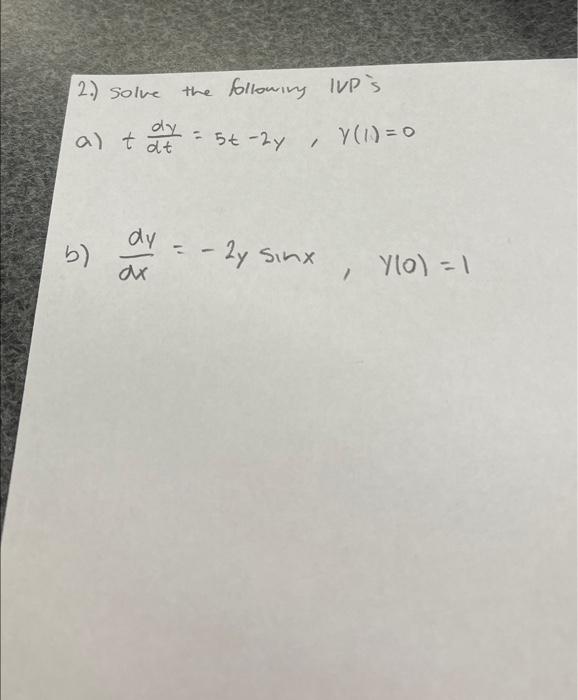 2.) Solve the following IVP's
a) t dy/dt = 5t - 2y , Y(1) = 0
b) dy/dx = - 2y sinx , Y(0) = 1